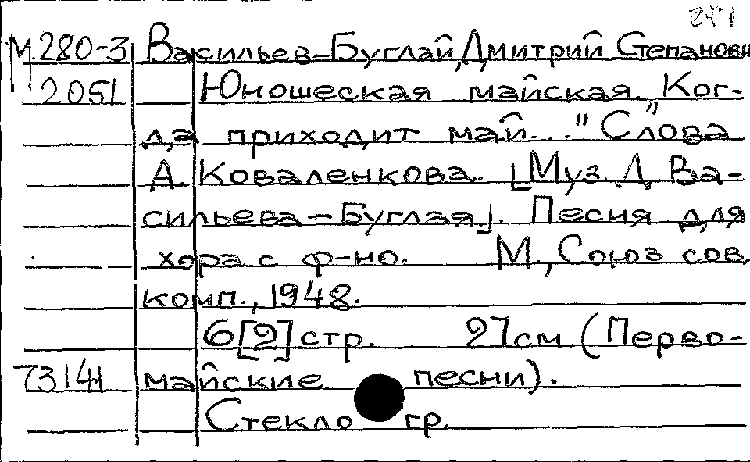 М280-3 Васильев-Буглай, Дмитрий Степанови
2051 Юношеская майская. Ког-
да приходит май... "Слова
А. Коваленкова. [Муз. Д. Ва-
сильева-Буглая]. Песня для
хора с ф-но. М., Союз сов.
комп., 1948.
6[2] стр. 27см (Перво-
73144 майские песни).
Стекло гр.